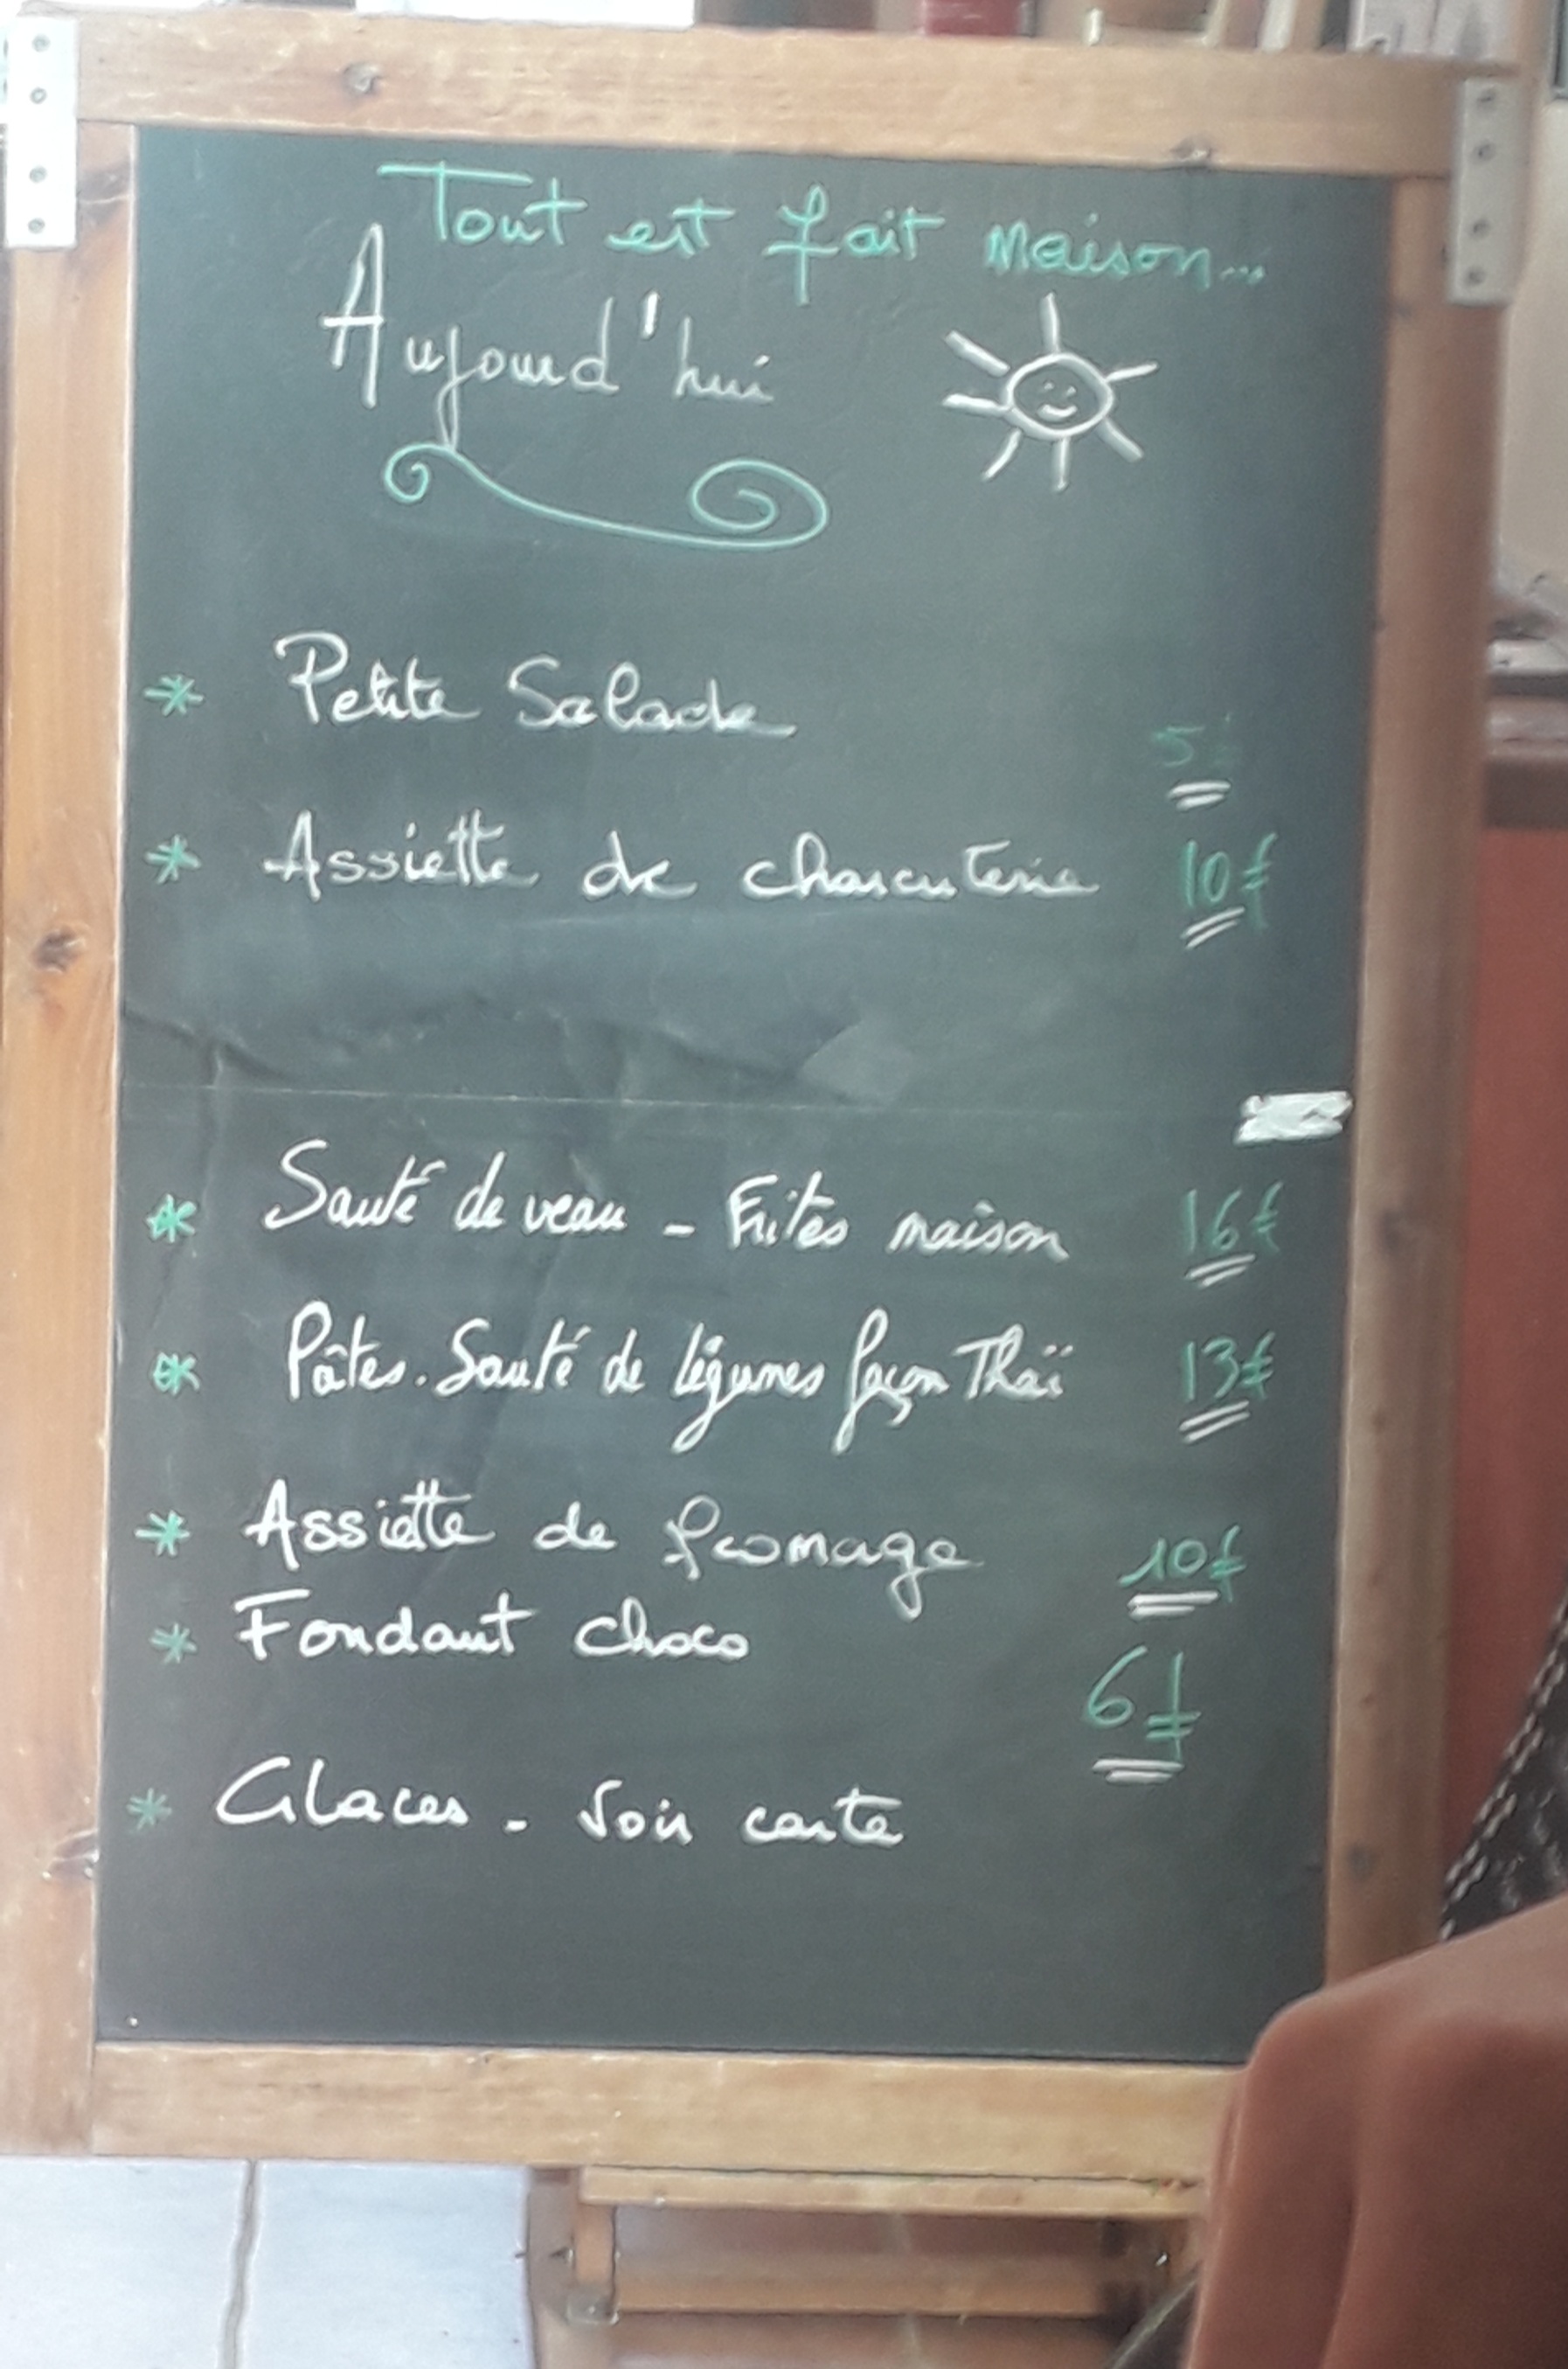 Tout est fait maison...
Aujourd'hui
* Petite Salade 5€
* Assiette de charcuterie 10€
* Sauté de veau - Frites maison 16€
* Pâtes. Sauté de légumes façon Thaï 13€
* Assiette de fromage 10€
* Fondant choco 6€
* Glaces - Voir carte